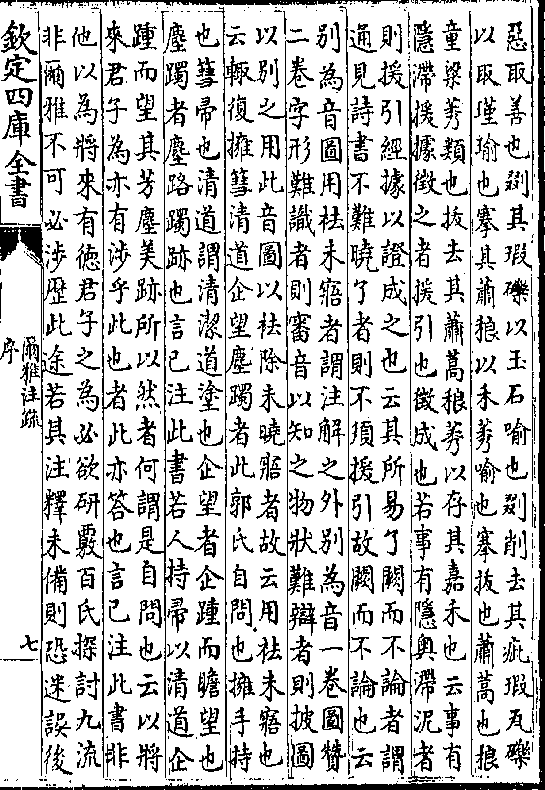 惡取善也剟其瑕礫以玉石喻也剟削去其疵瑕瓦礫
以取瑾瑜也搴其蕭稂以禾莠喻也搴拔也蕭蒿也稂
童粱莠類也拔去其蕭蒿稂莠以存其嘉禾也云事有
隱滯援據徵之者援引也徵成也若事有隱奥滯泥者
則援引經據以證成之也云其所易了闕而不論者謂
通見詩書不難曉了者則不須援引故闕而不論也云
別為音圖用袪未寤者謂注解之外別為音一卷圖贊
二卷字形難識者則審音以知之物狀難辯者則披圖
以別之用此音圖以袪除未曉寤者故云用袪未寤也
云輒復擁篲清道企望塵躅者此郭氏自問也擁手持
也篲帚也清道謂清潔道塗也企望者企踵而瞻望也
塵躅者塵路躅跡也言已注此書若人持帚以清道企
踵而望其芳塵美跡所以然者何謂是自問也云以將
來君子為亦有涉乎此也者此亦答也言已注此書非
他以為將來有德君子之為必欲研覈百氏探討九流
非爾雅不可必涉歴此途若其注釋未備則恐迷誤後
欽定四庫全書
爾雅注疏
序
七